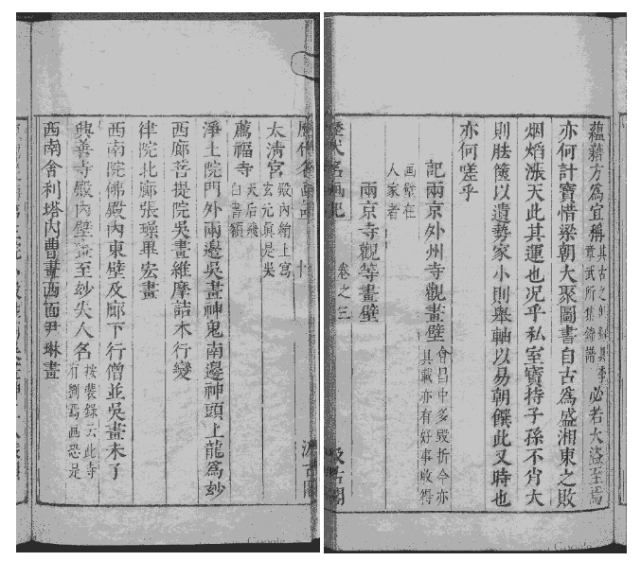 蘊藉方為宜稱
章武所集
必若大盜至焉
亦何計寶惜梁朝大聚圖書自古為盛湘東之敗
烟熖漲天此其運也况乎私室寶持子孫不肖大
則胠篋以遺勢家小則舉軸以易朝饌此又時也
亦何嗟乎
記兩京外州寺觀畫壁
會昌中多毀折今亦
具載亦有好事收得
画壁在
人家者
兩京寺觀等畫壁
歷代名画記 卷之三 汲古閣
太清宮
殿內絵上寫
玄元真是吳
薦福寺
天后飛
白書額
淨土院門外兩邊吳畫神鬼南邊神頭上龍為妙
西廊菩提院吳畫維摩詰本行變
律院北廊張璪畢宏畫
西南院佛殿內東壁及廊下行僧並吳畫未了
興善寺殿內壁畫至妙失人名
按裴錄云此寺
有劉焉画恐是
西南舍利塔內曹畫西面尹琳畫